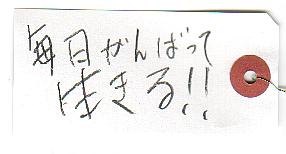 毎日がんばって
生きる!!